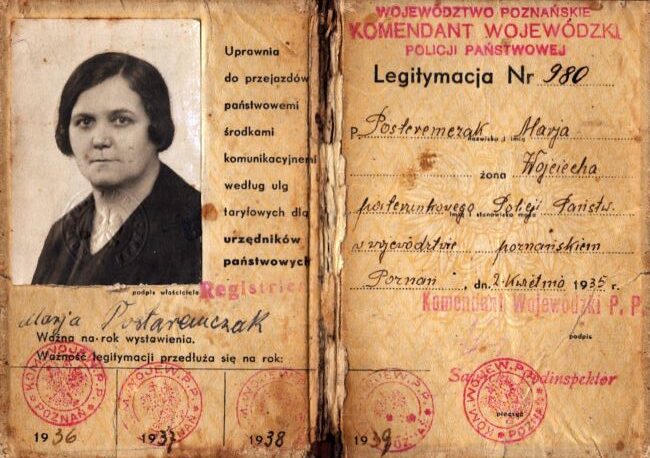 Uprawnia
do przejazdów
państwowemi
środkami
komunikacyjnemi
według ulg
taryfowych dla
urzędników
państwowych
podpis właściciela
Marja Postaremczak
Ważna na rok wystawienia.
Ważność legitymacji przedłuża się na rok:
1936
1937
1938
1939
KOM. WOJEW. P.P.
POZNAŃ
WOJEWÓDZTWO POZNAŃSKIE
KOMENDANT WOJEWÓDZKI
POLICJI PAŃSTWOWEJ
Legitymacja Nr 980
P. Posteremczak Marja
nazwisko i imię
żona Wojciecha
posterunkowego Policji Państw.
imię i stanowisko męża
w województwie poznańskiem
Poznań, dn. 2 kwietnia 1935 r.
Komendant Wojewódzki P. P.
podpis
Podinspektor
pieczęć
KOM. WOJEW. P.P.